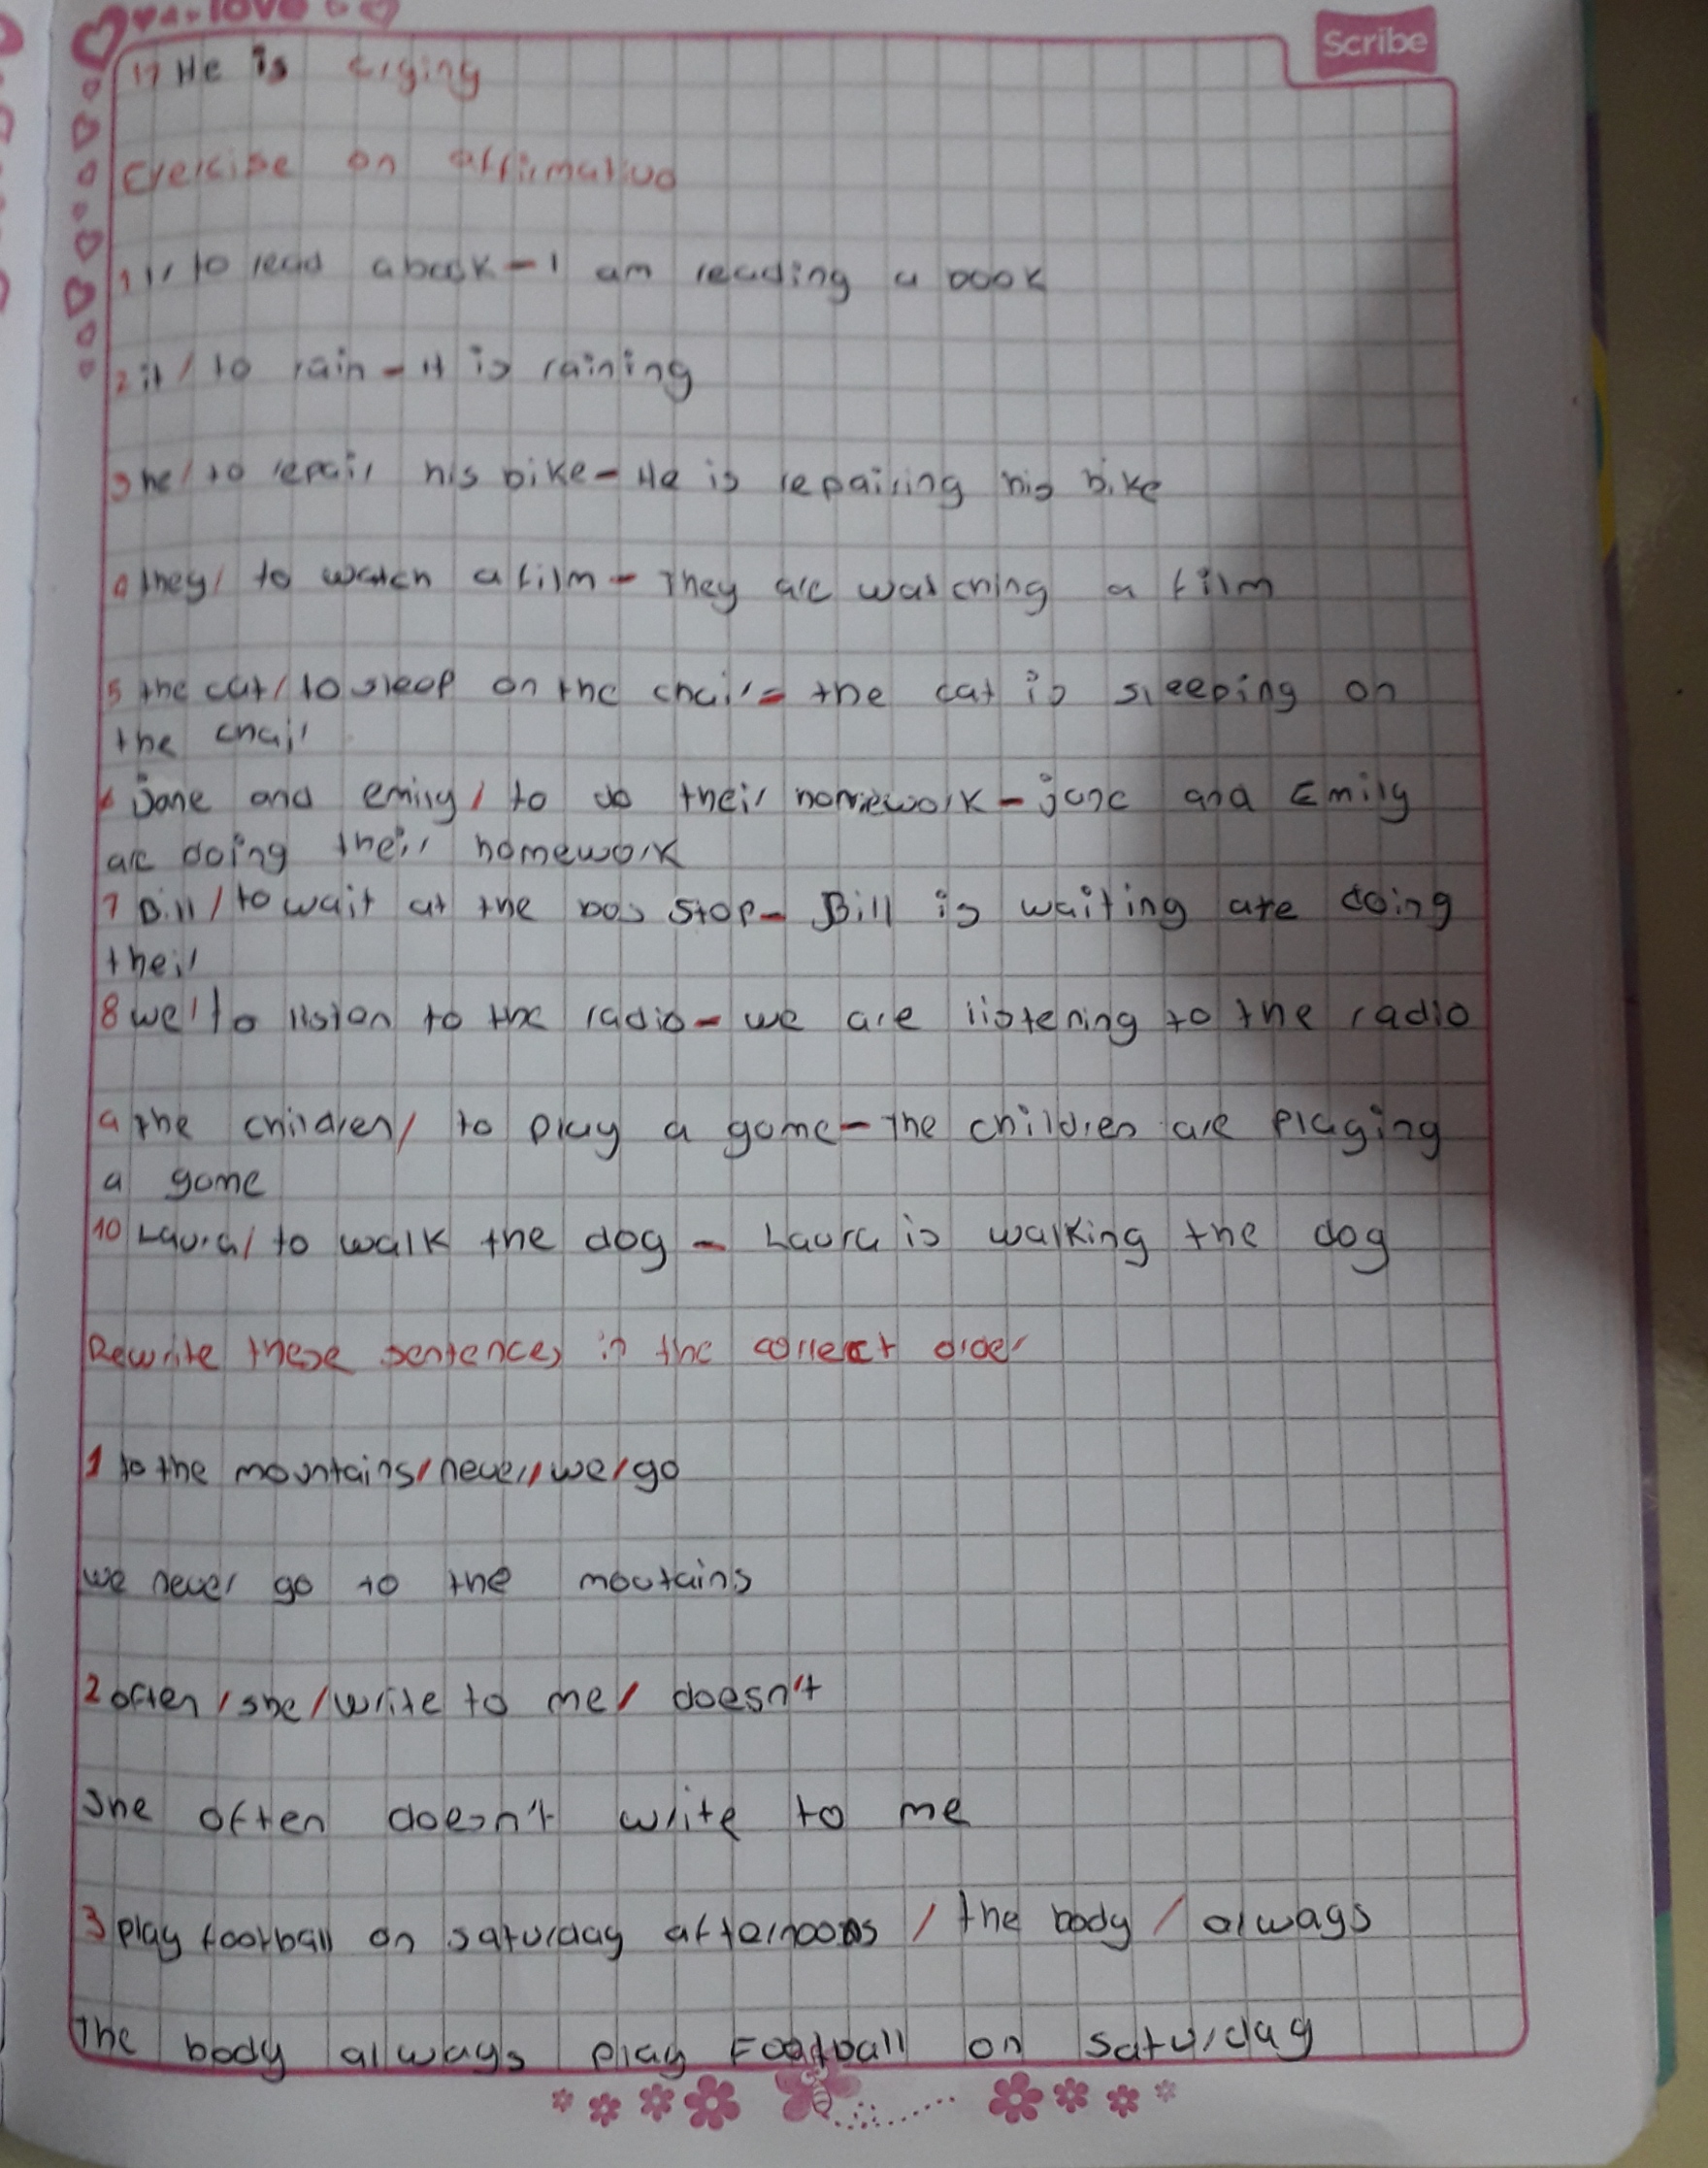 love
Scribe
17 He is crying
Exercise on affirmativo
1 I / to read a book - I am reading a book
2 it / to rain - it is raining
3 he / to repair his bike - He is repairing his bike
4 they / to watch a film - They are watching a film
5 the cat / to sleep on the chair - the cat is sleeping on
the chair
6 Jane and emily / to do their homework - jane and Emily
are doing their homework
7 Bill / to wait at the bus stop - Bill is waiting are doing
their
8 we / to liston to the radio - we are listening to the radio
9 the children / to play a game - The children are playing
a game
10 Laura / to walk the dog - Laura is walking the dog
Rewrite these sentences in the correct order
1 to the mountains / never / we / go
we never go to the moutains
2 often / she / write to me / doesn't
she often doesn't write to me
3 play football on saturday afternoons / the body / always
The body always play Football on saturday